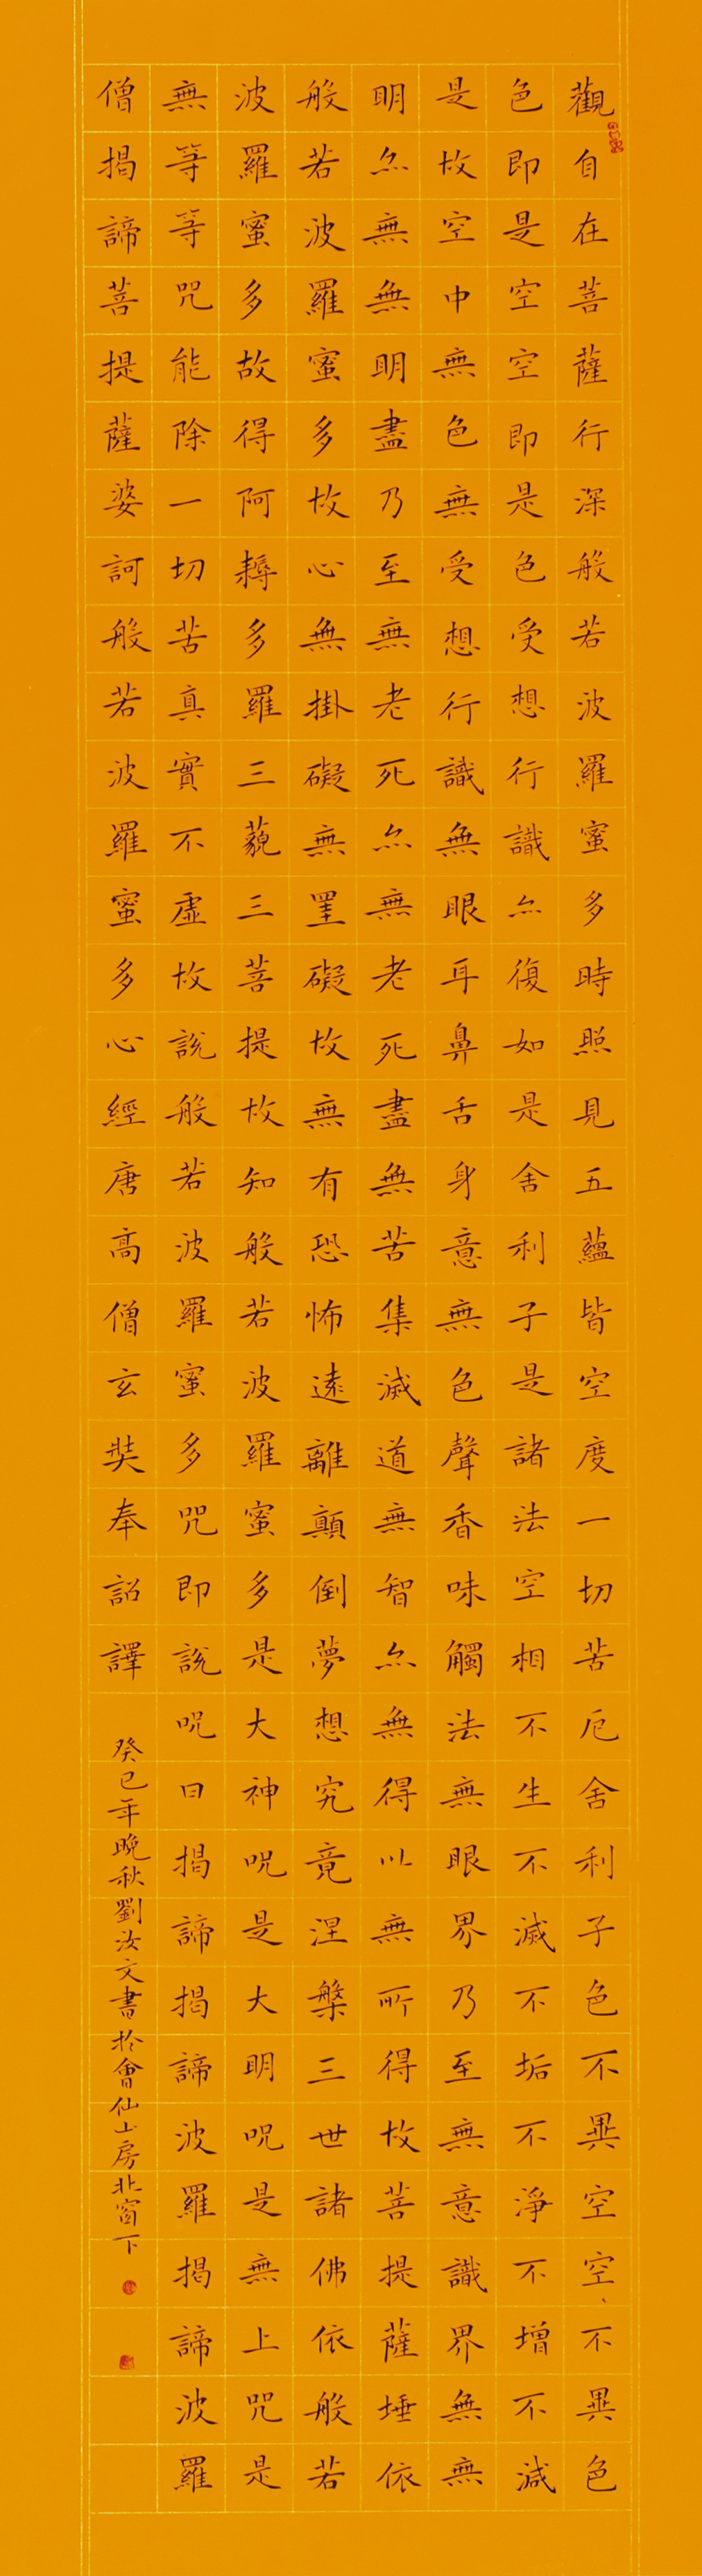 觀自在菩薩行深般若波羅蜜多時照見五蘊皆空度一切苦厄舍利子色不異空空、不異色
色即是空空即是色受想行識亦復如是舍利子是諸法空相不生不滅不垢不淨不增不減
是故空中無色無受想行識無眼耳鼻舌身意無色聲香味觸法無眼界乃至無意識界無無
明亦無無明盡乃至無老死亦無老死盡無苦集滅道無智亦無得以無所得故菩提薩埵依
般若波羅蜜多故心無掛礙無罣礙故無有恐怖遠離顛倒夢想究竟涅槃三世諸佛依般若
波羅蜜多故得阿耨多羅三藐三菩提故知般若波羅蜜多是大神咒是大明咒是無上咒是
無等等咒能除一切苦真實不虛故說般若波羅蜜多咒即說咒曰揭諦揭諦波羅揭諦波羅
僧揭諦菩提薩婆訶般若波羅蜜多心經唐高僧玄奘奉詔譯
癸巳年晚秋劉汝文書於會仙山房北窗下